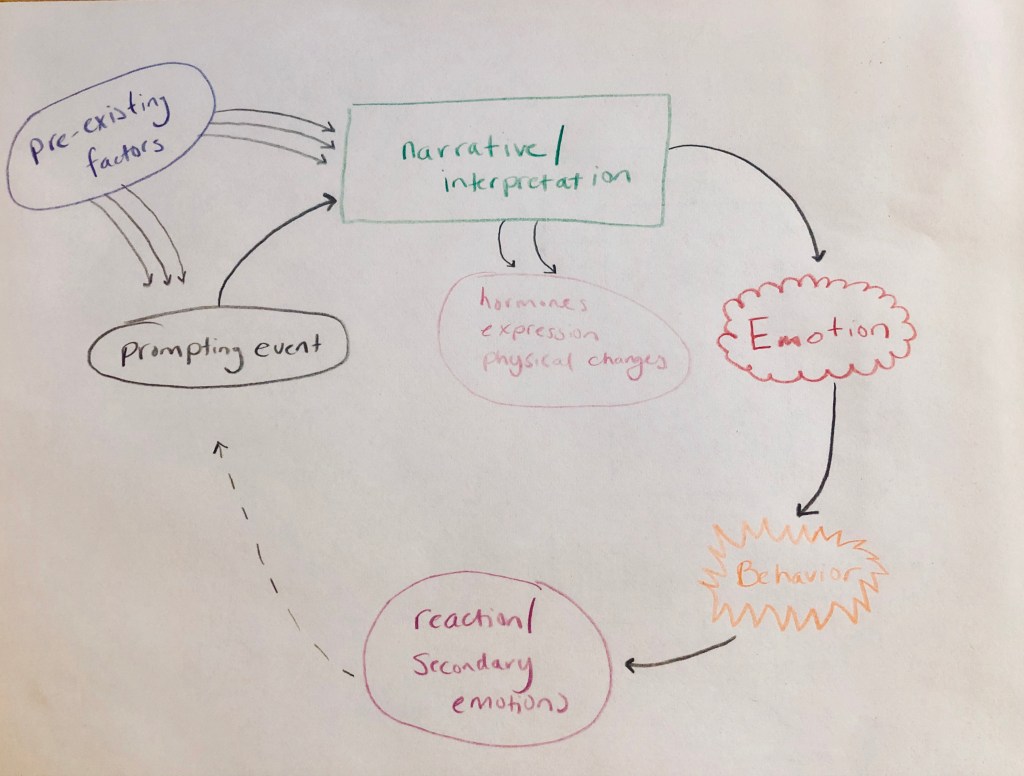 pre-existing
factors
narrative/
interpretation
prompting event
hormones
expression
physical changes
Emotion
Behavior
reaction/
Secondary
emotions